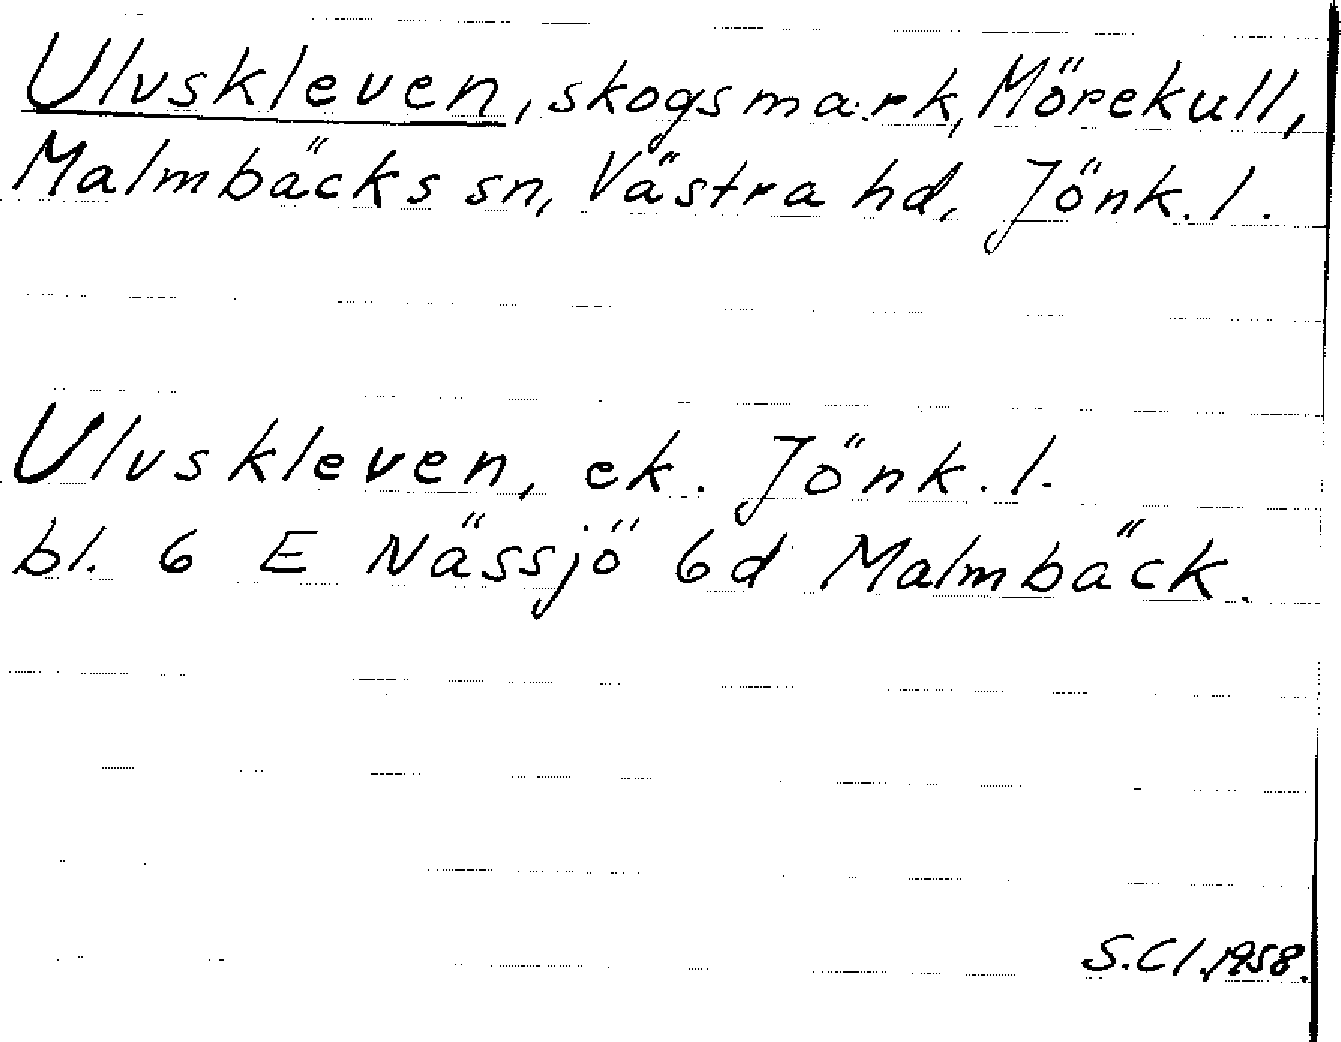 Ulvskleven, skogsmark, Mörekull,
Malmbäcks sn, Västra hd, Jönk. l.
Ulvskleven, ek. Jönk. l.
bl. 6 E Nässjö 6d Malmbäck.
S.Cl. 1958.